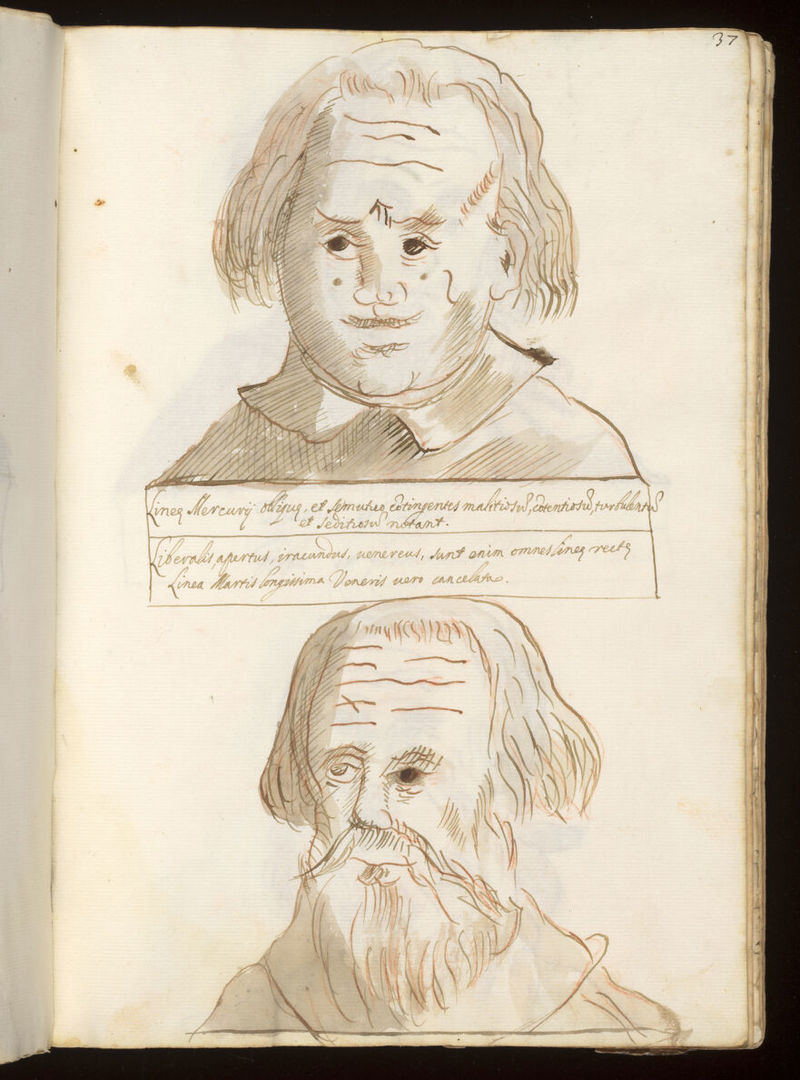 37
Lineę Mercurij obliquę, et semutuo cōtingentes malitiosū, cōtentiosū, turbulentū
et seditiosū notant.
Liberalis apertus, iracundus, uenereus, sunt enim omnes lineę rectę
Linea Martis longissima Veneris uero cancelata.